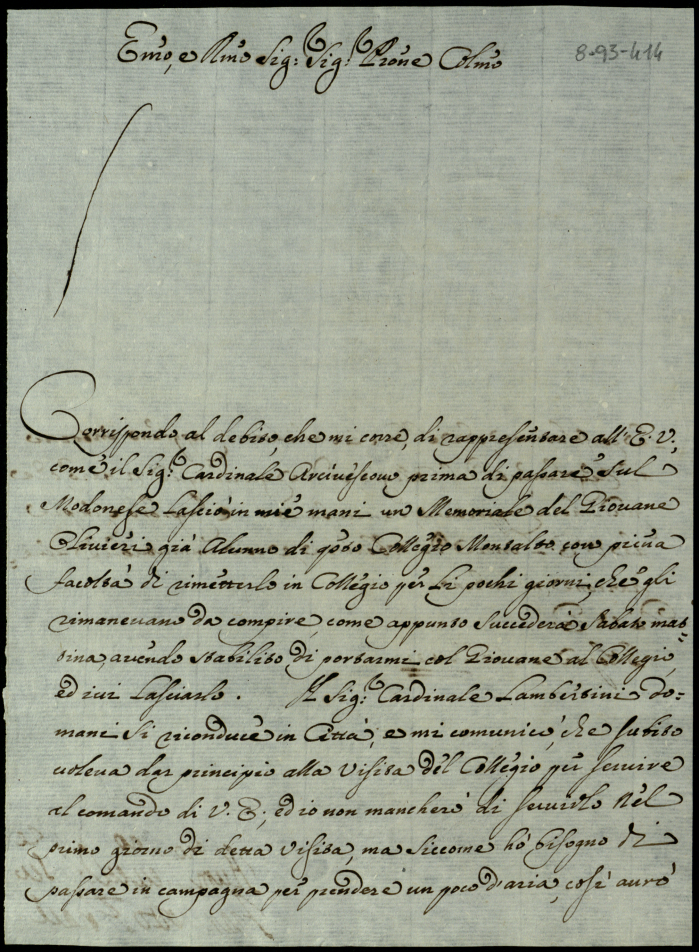 Emo, e Rmo Sig:r Sig:r Prone Colmo
8-93-414
Corrispondo al debito, che mi corre, di rappresentare all' E. V.,
come il Sig:r Cardinale Arcivescovo prima di passare sul
Modonese lasciò in mie mani un Memoriale del Giovane
Olivieri già Alunno di qsto Collegio Montalto con piena
facoltà di rimetterlo in Collegio per li pochi giorni, che gli
rimanevano da compire, come appunto succederà Sabato mat=
tina, avendo stabilito di portarmi col Giovane al Collegio,
ed ivi lasciarlo. Il Sig:r Cardinale Lambertini do=
mani si riconduce in Città, e mi comunicò, che subito
voleva dar principio alla Visita del Collegio per servire
al comando di V. E., ed io non mancherò di servirlo nel
primo giorno di detta Visita, ma siccome hò bisogno di
passare in campagna per prendere un poco d'aria, così avrò